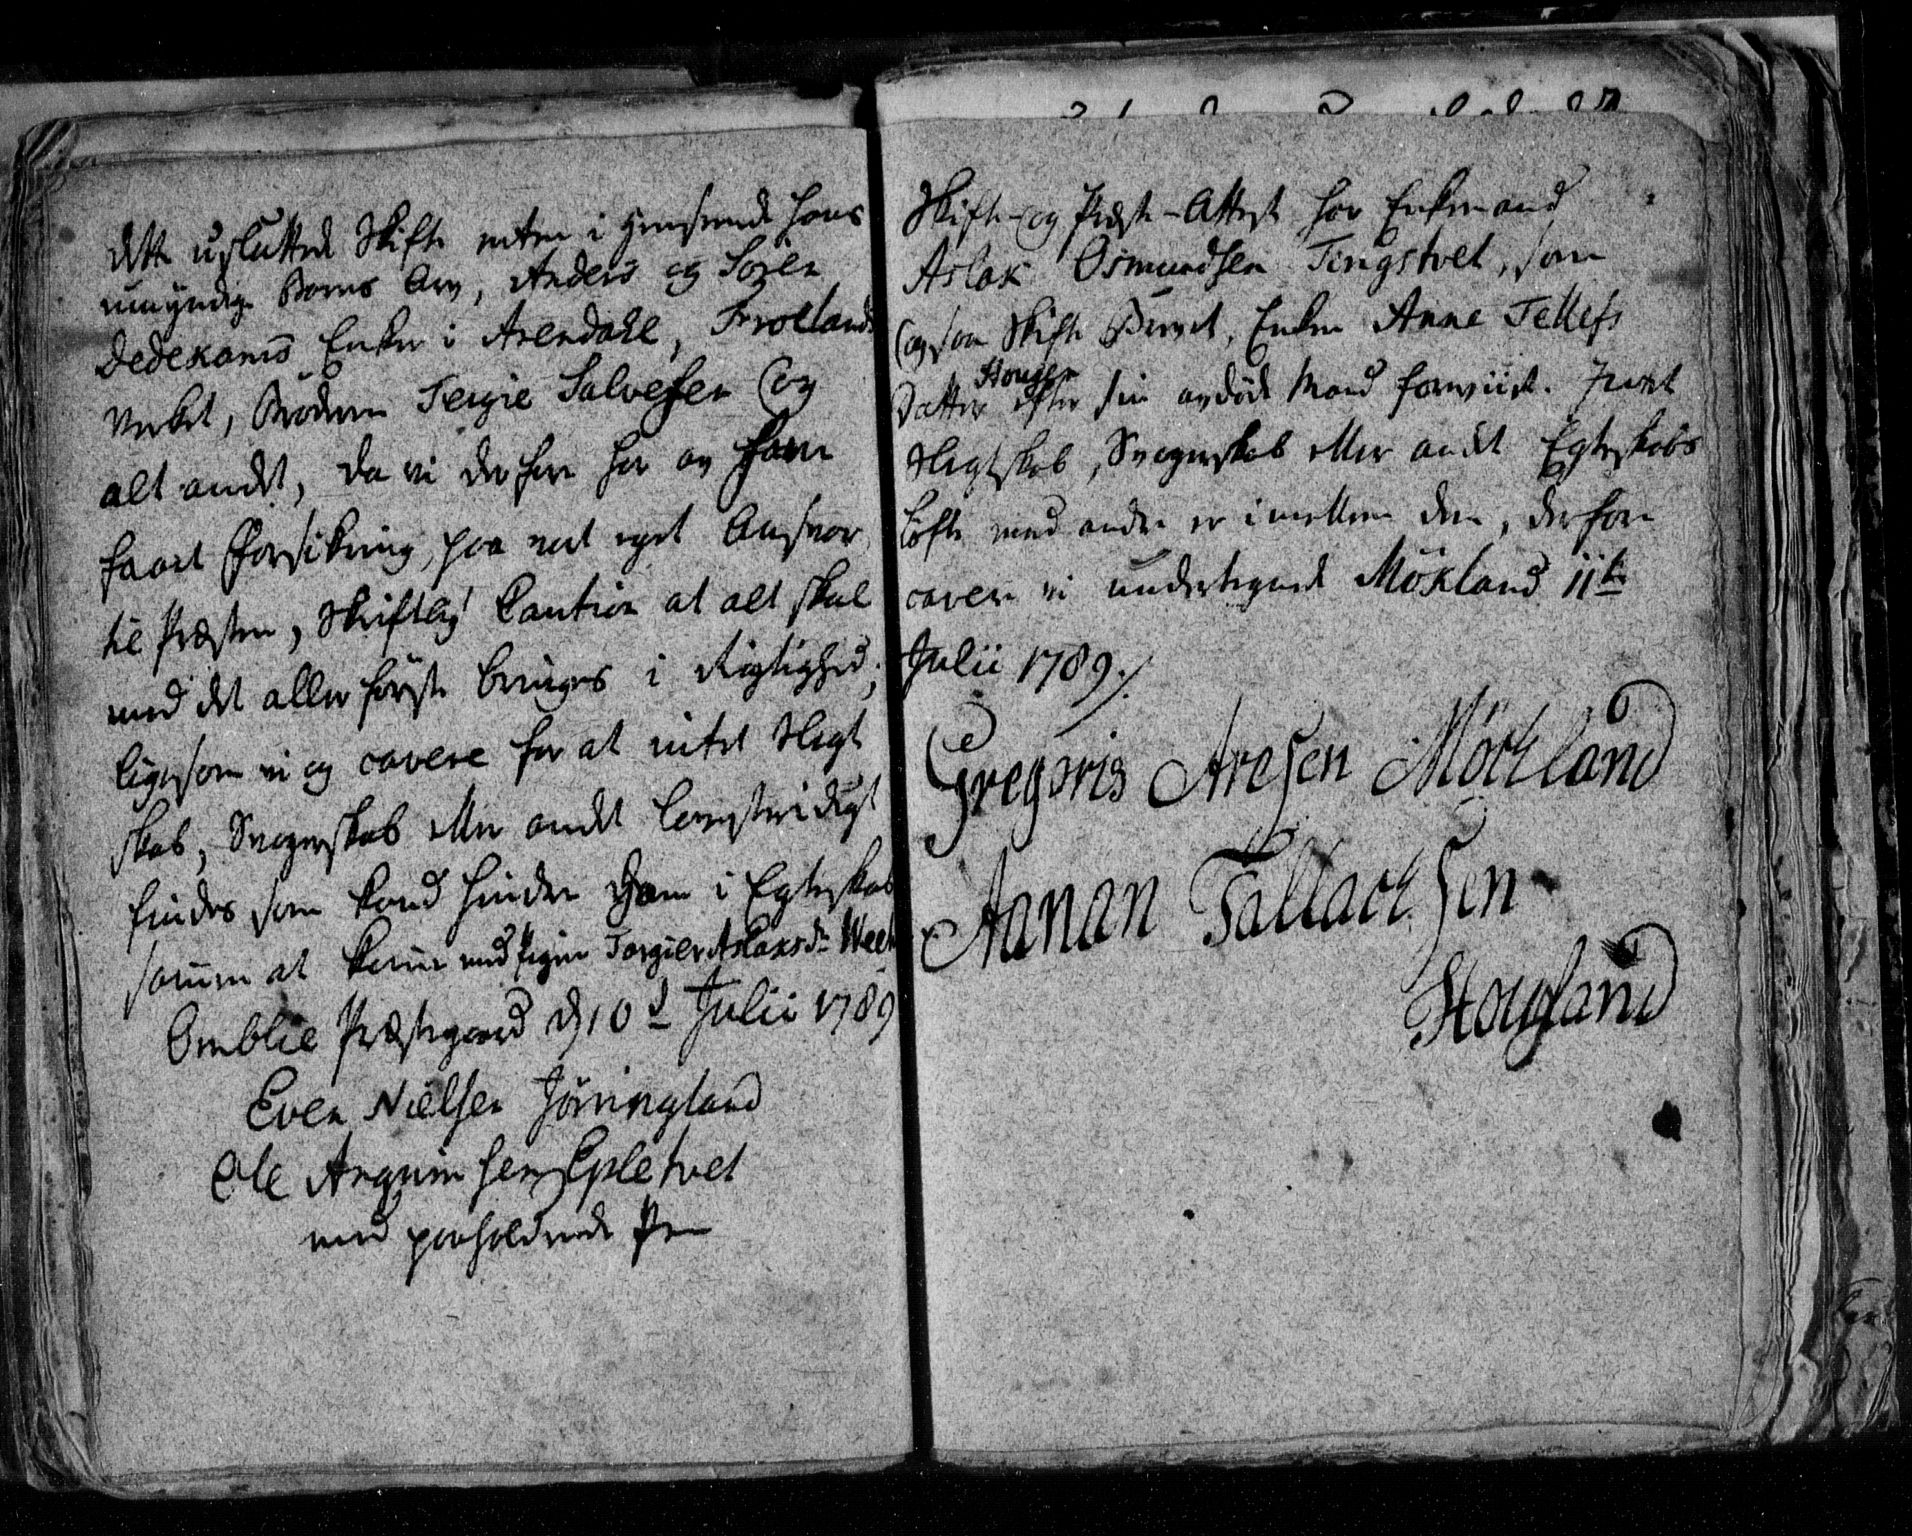 dette usluttede Skifte enten i Henseende hans
umyndige Børns Arv, Anders og Søren
Dedekams Enker i Arendahl, Froelands
Verket, Broderen Tergie Salvesen og
alt andet, da vi derfore har og ham
faaet Forsikring, paa vort eget Ansvar
til Præsten, Skriftlig Caution at alt skal
med det aller første bringes i Rigtighed;
ligesom vi og cavere for at intet Slegt
skab, Svogerskab eller andet Lovstridigt
findes som kand hindre Ham i Egteskab
sammen at komme med Pigen Torgier Aslaksdr
Omblie Præstegaard d 10d Julii 1789
Even Nielsen Jöreingland
Ole Anguimsen Epletvet
med paaholdende Pen
Skifte- og Præste-Attest har Enkemand
Aslak Osmundsen Tingstvet, som
og saa Skifte Beviset, Enken Anne Tellefs
Hougen
Datter efter sin avdöde Mand foreviist. Intet
Slegtskab, Svogerskab eller andet Egteskabs
Löfte med andre er imellem dem, derfore
cavere vi undertegnede Mökland 11te
Julii 1789.
Gregoris Aresen Möckland
Aanan Tallachsen
Hougland